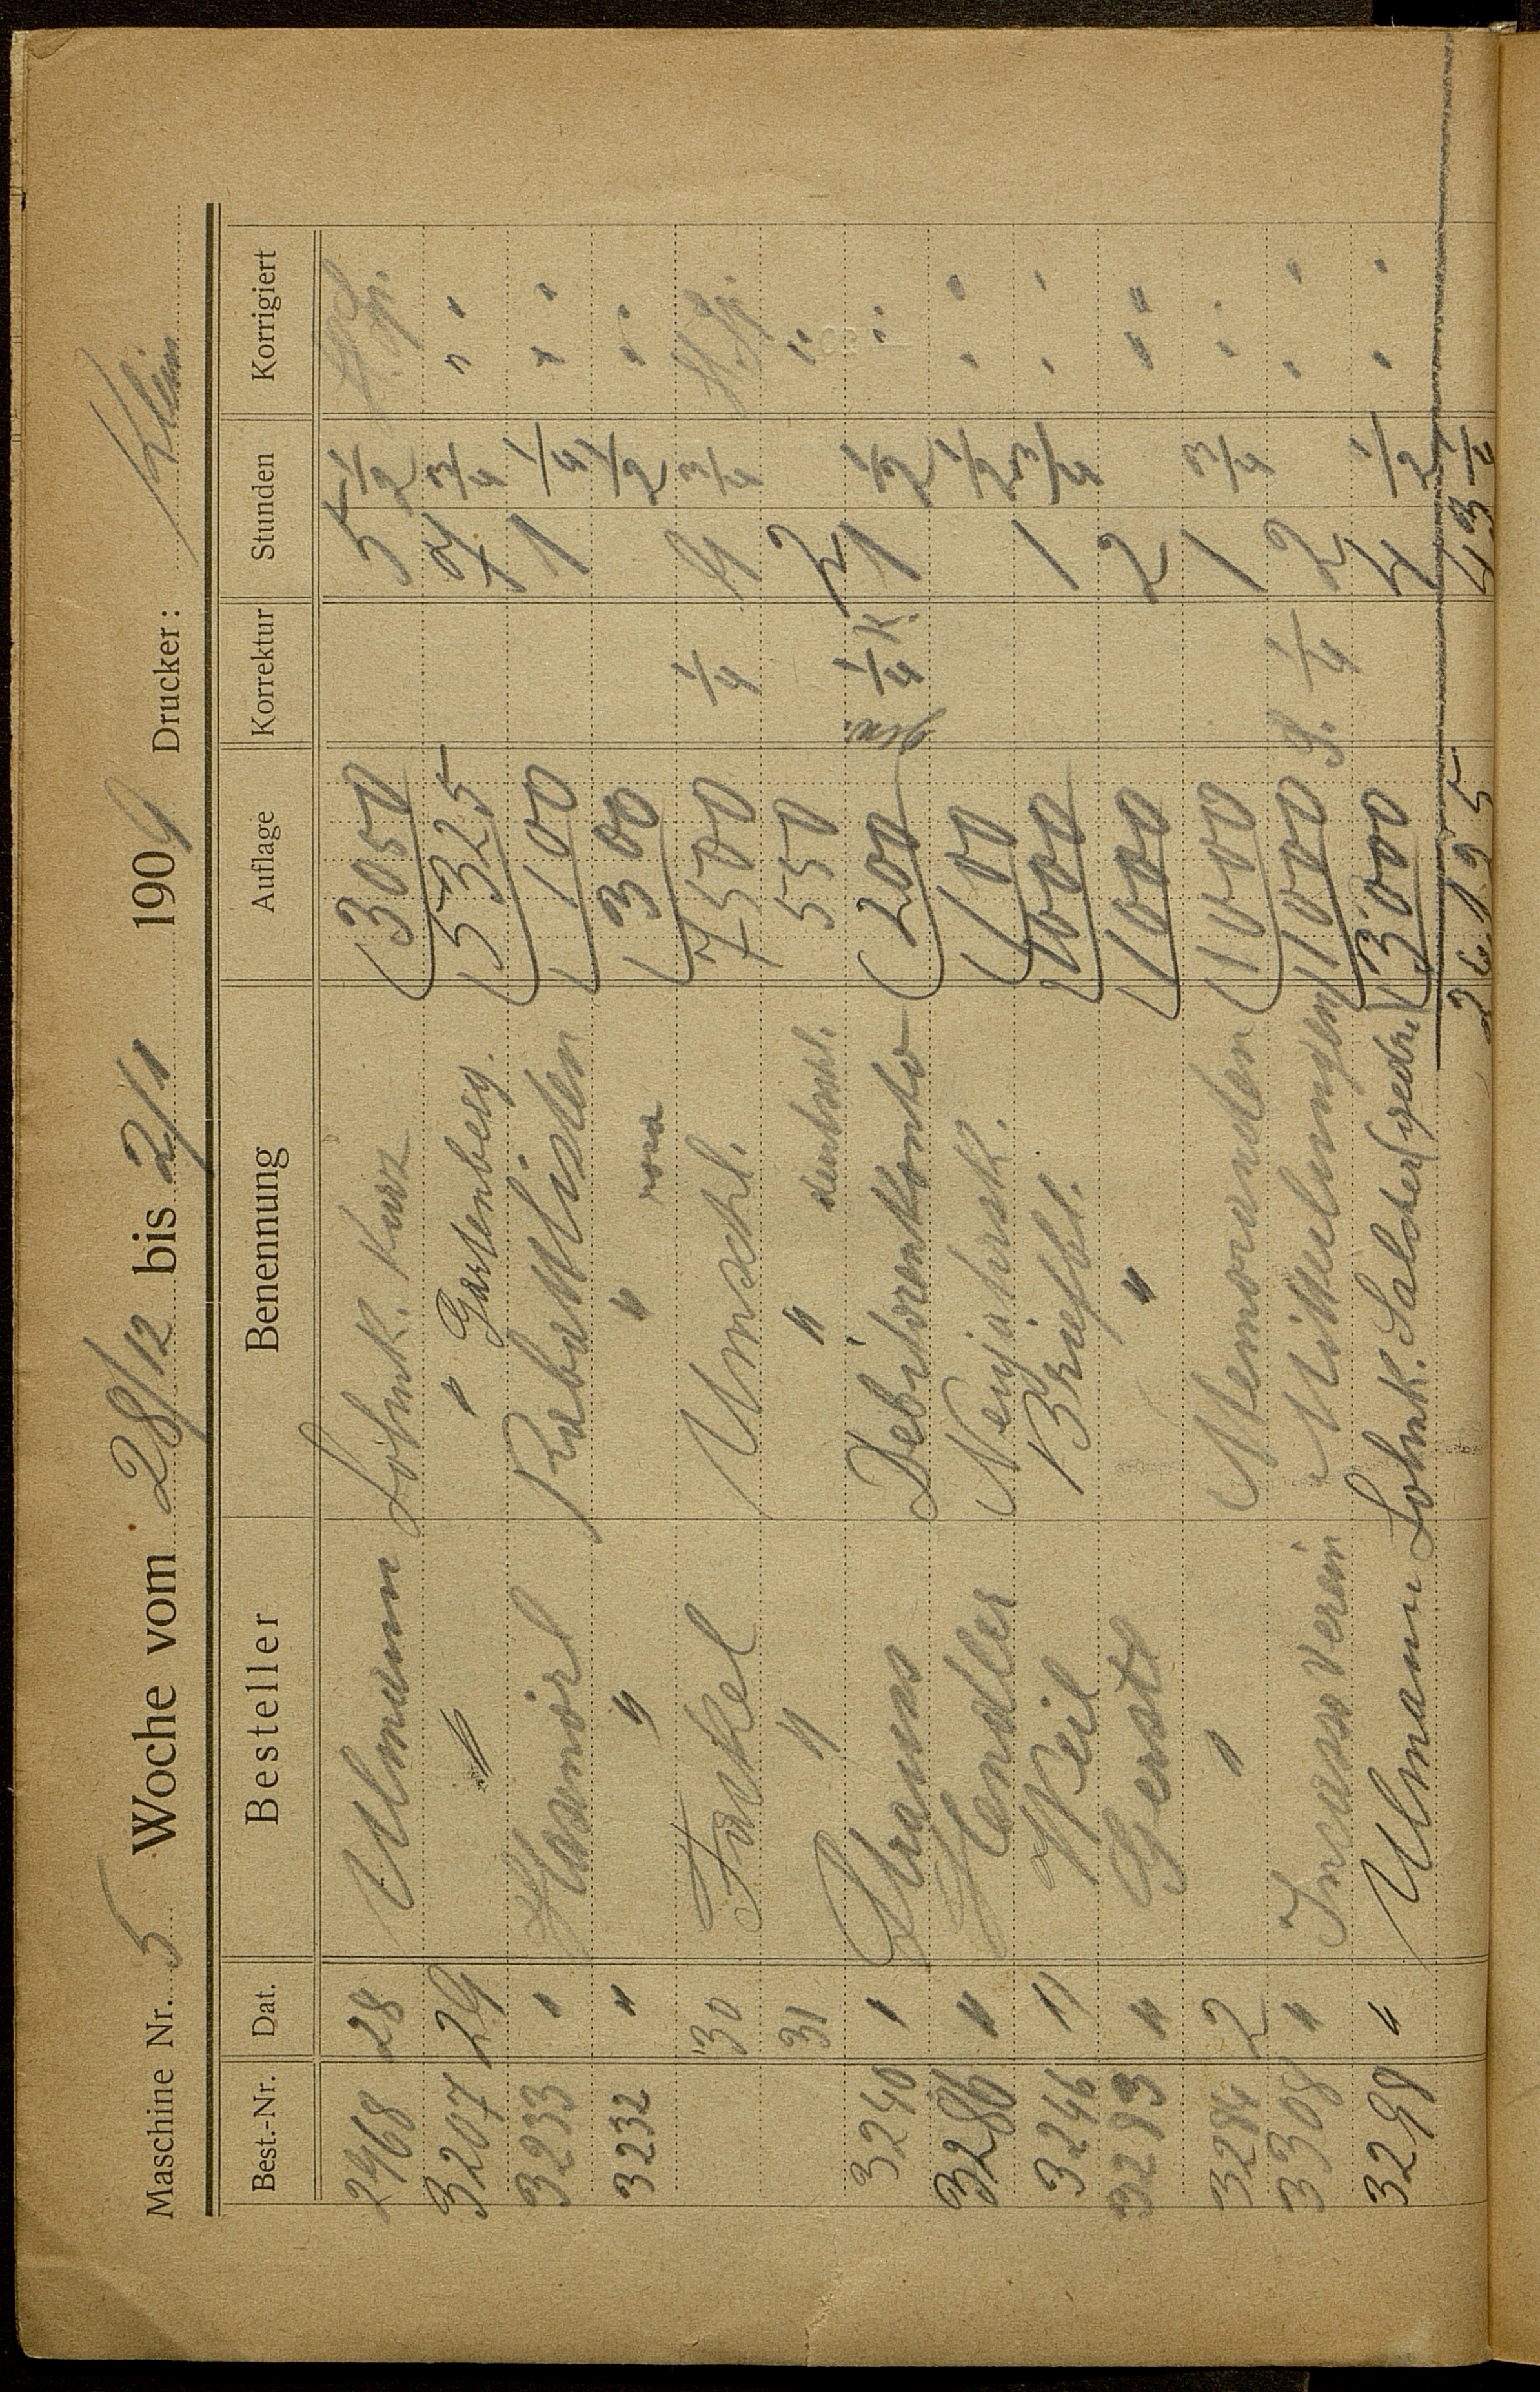 Maschine Nr. 5 Woche vom 28/12 bis 2/1 1909 Drucker: Klein
Best.-Nr. Dat. Besteller Benennung Auflage Korrektur Stunden Korrigiert
2968 28 Ulmann Lohnk. Kurz 3050 5 1/2
3207 29 " " Gartenberg. 5325 7 3/4 " "
3233 " Rabattlisten 100 1 1/4 " "
3232 " " " rosa 300 1/2 " "
30 Fackel Umschl. 7500 1/4 4 3/4
31 " " 550 2 "
3240 " Strauss Debitorenkonto 200 1/4 K. 1 1/2 "
3286 " Hendler Neujahrsk. 100 1/2 " "
3246 " Weil Briefbl. 1000 1 3/4 " "
3283 " Gerstl " 1000 2 " "
3284 2 " Memoranden 1000 1 3/4 " "
3308 " Incasso Verein Mitteilungen 1000 1/4 2 " "
3298 " Ulmann Lohnk. Salcher 3000 4 1/2 " "
26.195 43 1/4